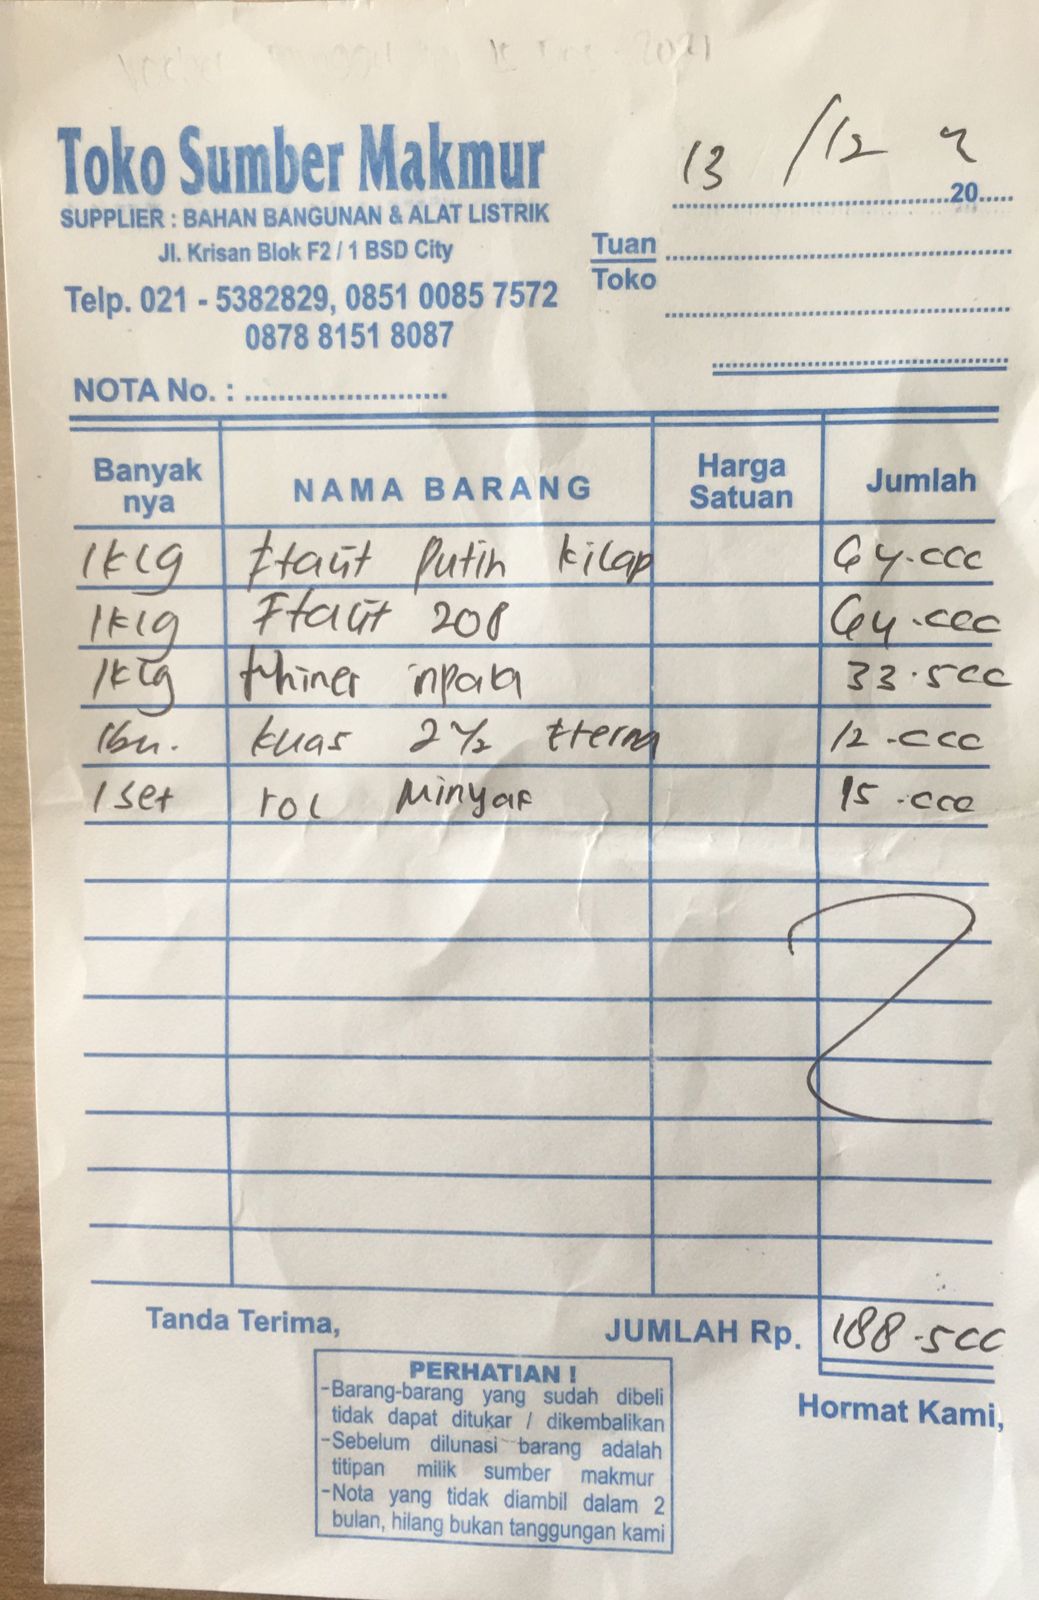 Toko Sumber Makmur
SUPPLIER : BAHAN BANGUNAN & ALAT LISTRIK
Jl. Krisan Blok F2 / 1 BSD City
Telp. 021 - 5382829, 0851 0085 7572
0878 8151 8087
13 /12
20.....
Tuan
Toko
NOTA No. : ........................
Banyak nya NAMA BARANG Harga Satuan Jumlah
1klg Ftalit Putih kilap 64.000
1klg Ftalit 208 64.000
1klg thiner inpala 33.500
1bu. kuas 2 1/2 Eterna 12.000
1 set rol Minyak 15.000
Tanda Terima,
JUMLAH Rp. 188.500
Hormat Kami,
PERHATIAN !
-Barang-barang yang sudah dibeli
tidak dapat ditukar / dikembalikan
-Sebelum dilunasi barang adalah
titipan milik sumber makmur
-Nota yang tidak diambil dalam 2
bulan, hilang bukan tanggungan kami